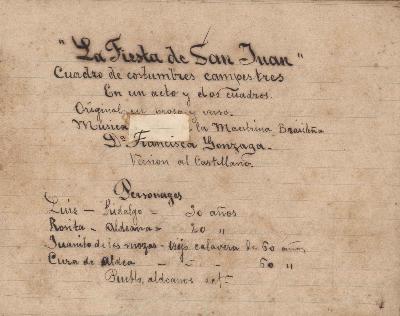 "La Fiesta de San Juan"
Cuadro de costumbres campestres
En un acto y dos cuadros.
Original en prosa y verso.
Musica la Maestrina Brasileña
Dª Francisca Gonzaga.
Version al Castellano
Personages
Luis — Hidalgo — 30 años
Rosita — Aldeana — 20 "
Juanito de las mozas — viejo calavera de 60 años
Cura de aldea — — 60 "
Pueblo, aldeanos etc.